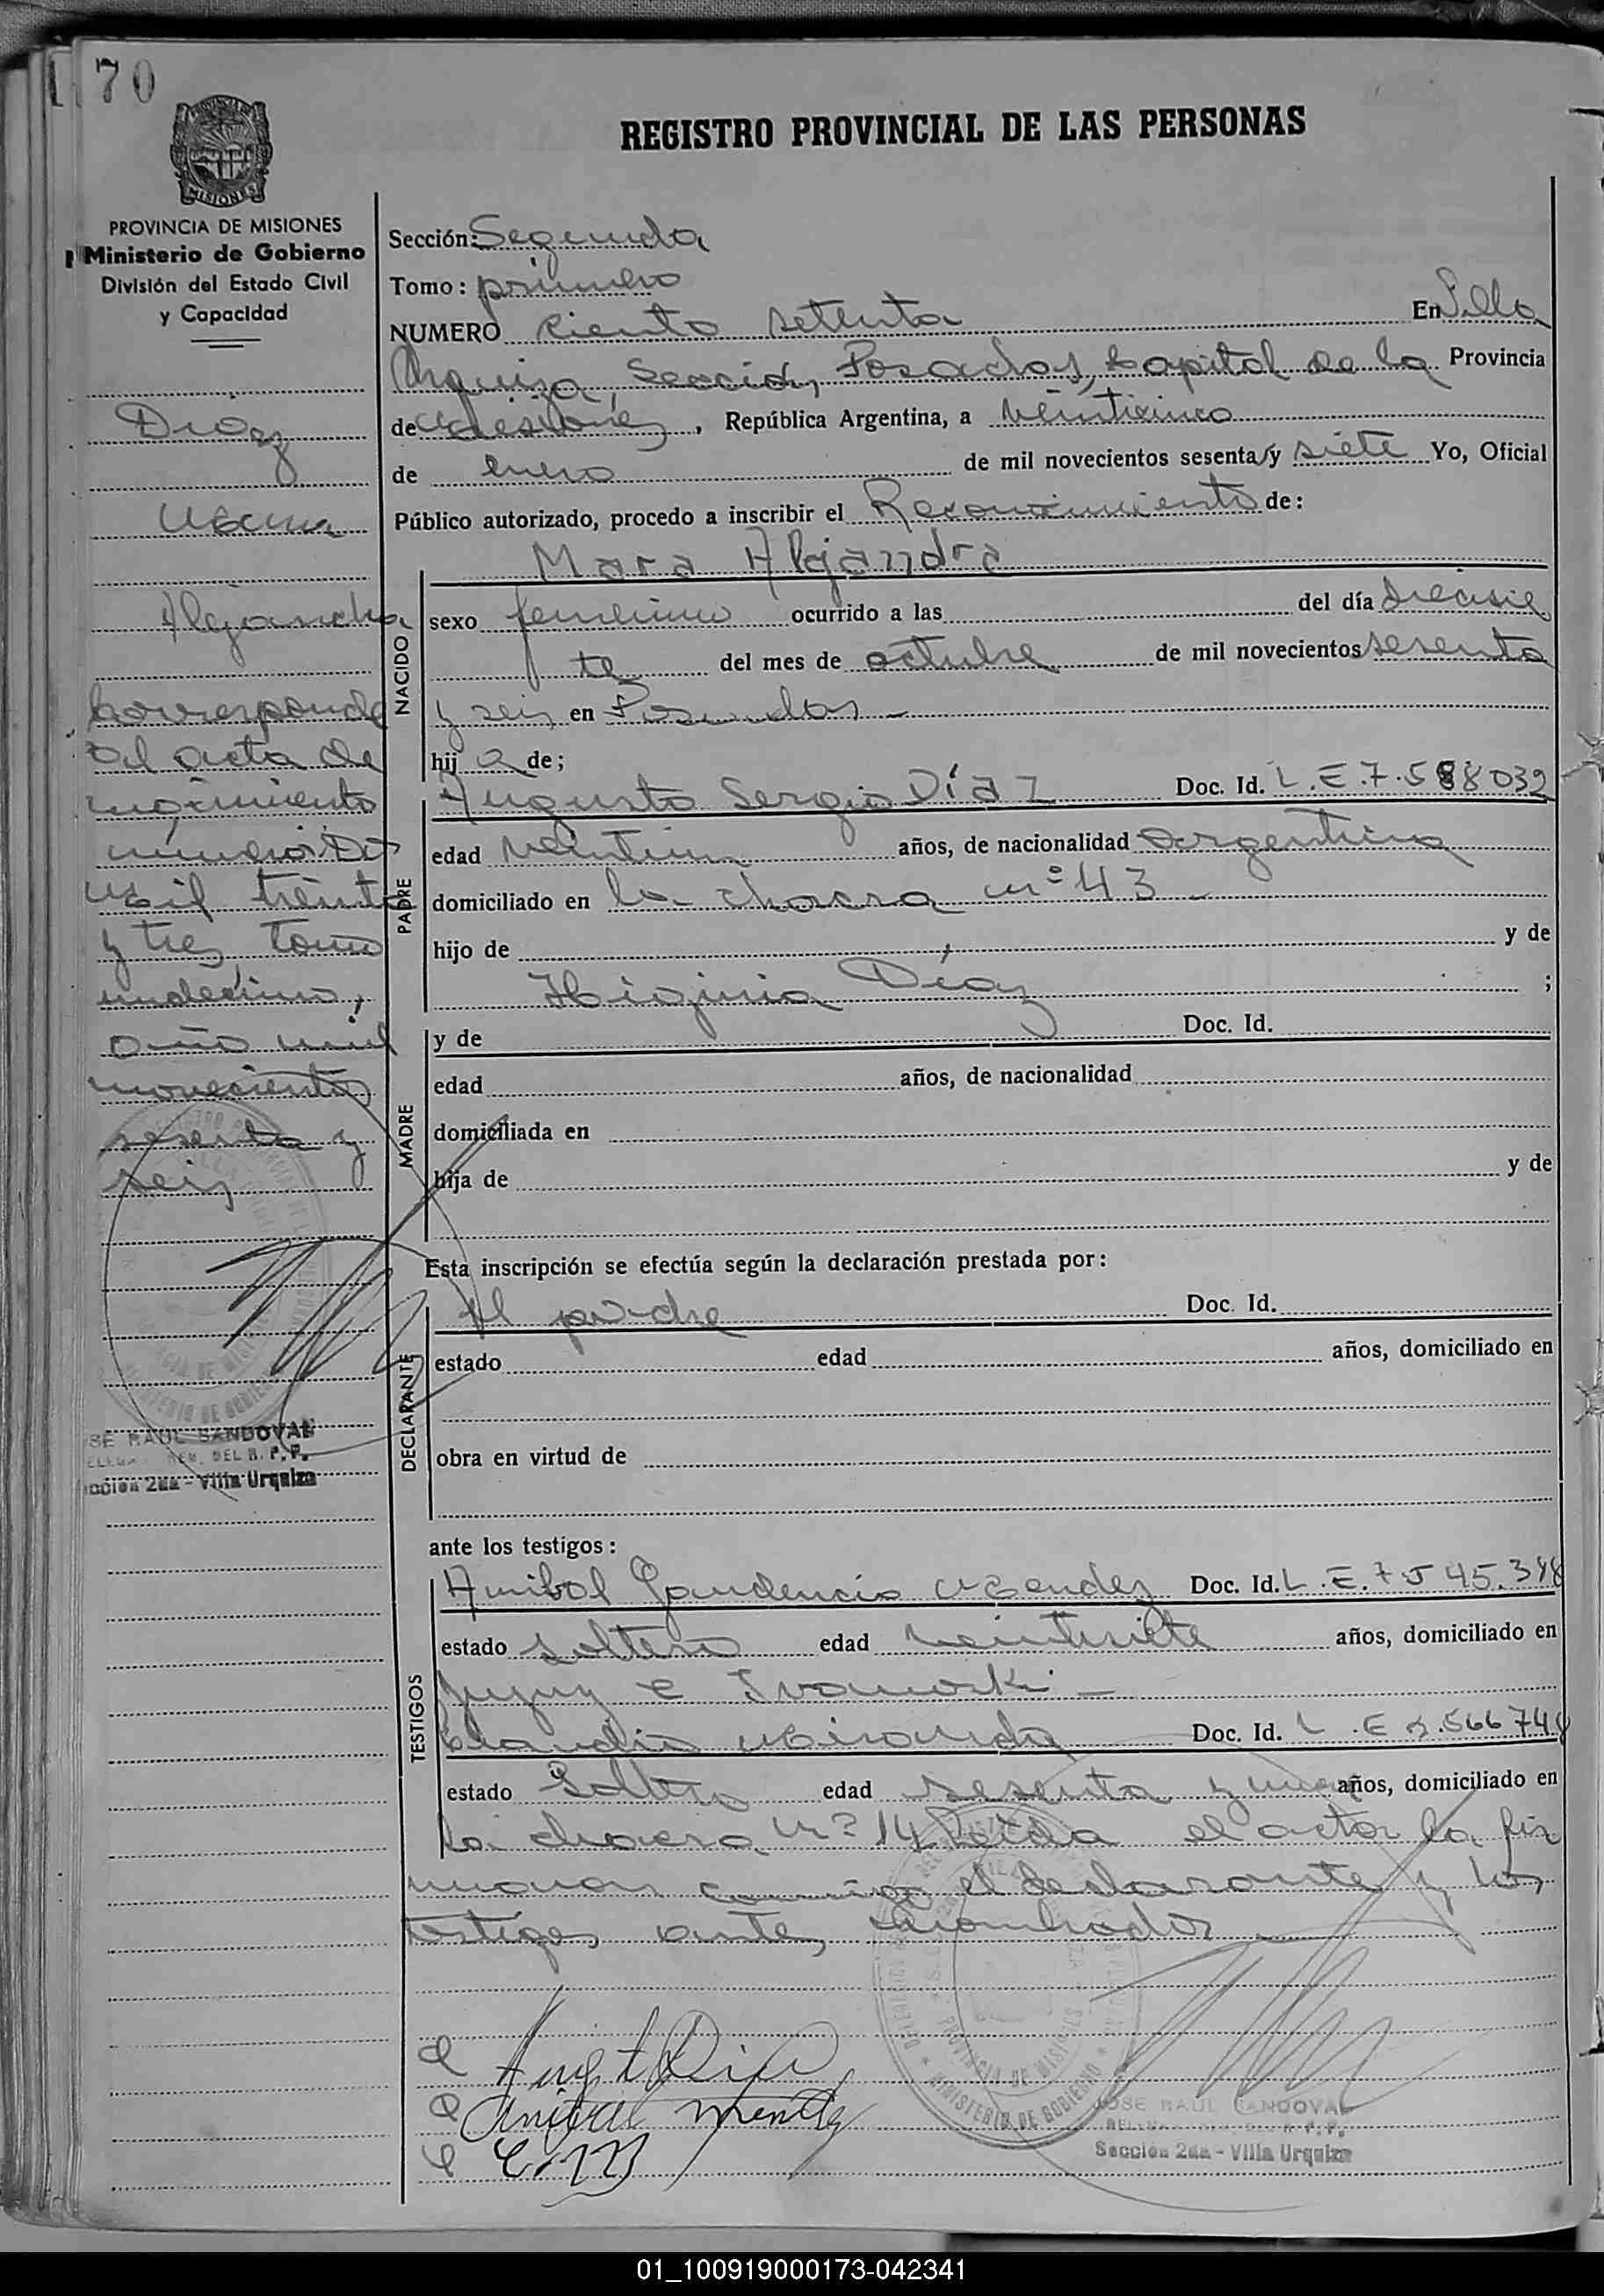 170
REGISTRO PROVINCIAL DE LAS PERSONAS
MISIONES
PROVINCIA DE MISIONES
Ministerio de Gobierno
División del Estado Civil
y Capacidad
Díaz
Mara
Alejandra
Corresponde
al acta de
nacimiento
número Dos
Mil treinta
y tres, tomo
undécimo,
año mil
novecientos
sesenta y
seis
SE RAUL SANDOVAL
DEL R. P. P.
cción 2da - Villa Urquiza
Sección: Segunda
Tomo: primero
NUMERO ciento setenta En Villa
Urquiza, Sección, Posadas, Capital de la Provincia
de Misiones, República Argentina, a veinticinco
de enero de mil novecientos sesenta y siete Yo, Oficial
Público autorizado, procedo a inscribir el Reconocimiento de:
NACIDO
Mara Alejandra
sexo femenino ocurrido a las del día diecisie
te del mes de octubre de mil novecientos sesenta
y seis en Posadas -
hij a de;
PADRE
Augusto Sergio Díaz Doc. Id. L.E.7.588032
edad veintiun años, de nacionalidad argentina
domiciliado en la chacra nº 43 -
hijo de y de
Higinia Díaz ;
MADRE
y de Doc. Id.
edad años, de nacionalidad
domiciliada en
hija de y de
Esta inscripción se efectúa según la declaración prestada por:
DECLARANTE
el padre Doc. Id.
estado edad años, domiciliado en
obra en virtud de
ante los testigos:
TESTIGOS
Anibal Gaudencio Mendez Doc. Id. L.E.7.545.398
estado soltero edad veintisiete años, domiciliado en
Jujuy e Ivanoski -
Claudio Miranda Doc. Id. L.E 2.566748
estado Soltero edad sesenta y un años, domiciliado en
la chacra Nº 14 Leída el acta, la fir
maron conmigo el declarante y los
testigos antes nombrados
Anibal Mendez
JOSE RAUL SANDOVAL
Sección 2da - Villa Urquiza
01_100919000173-042341